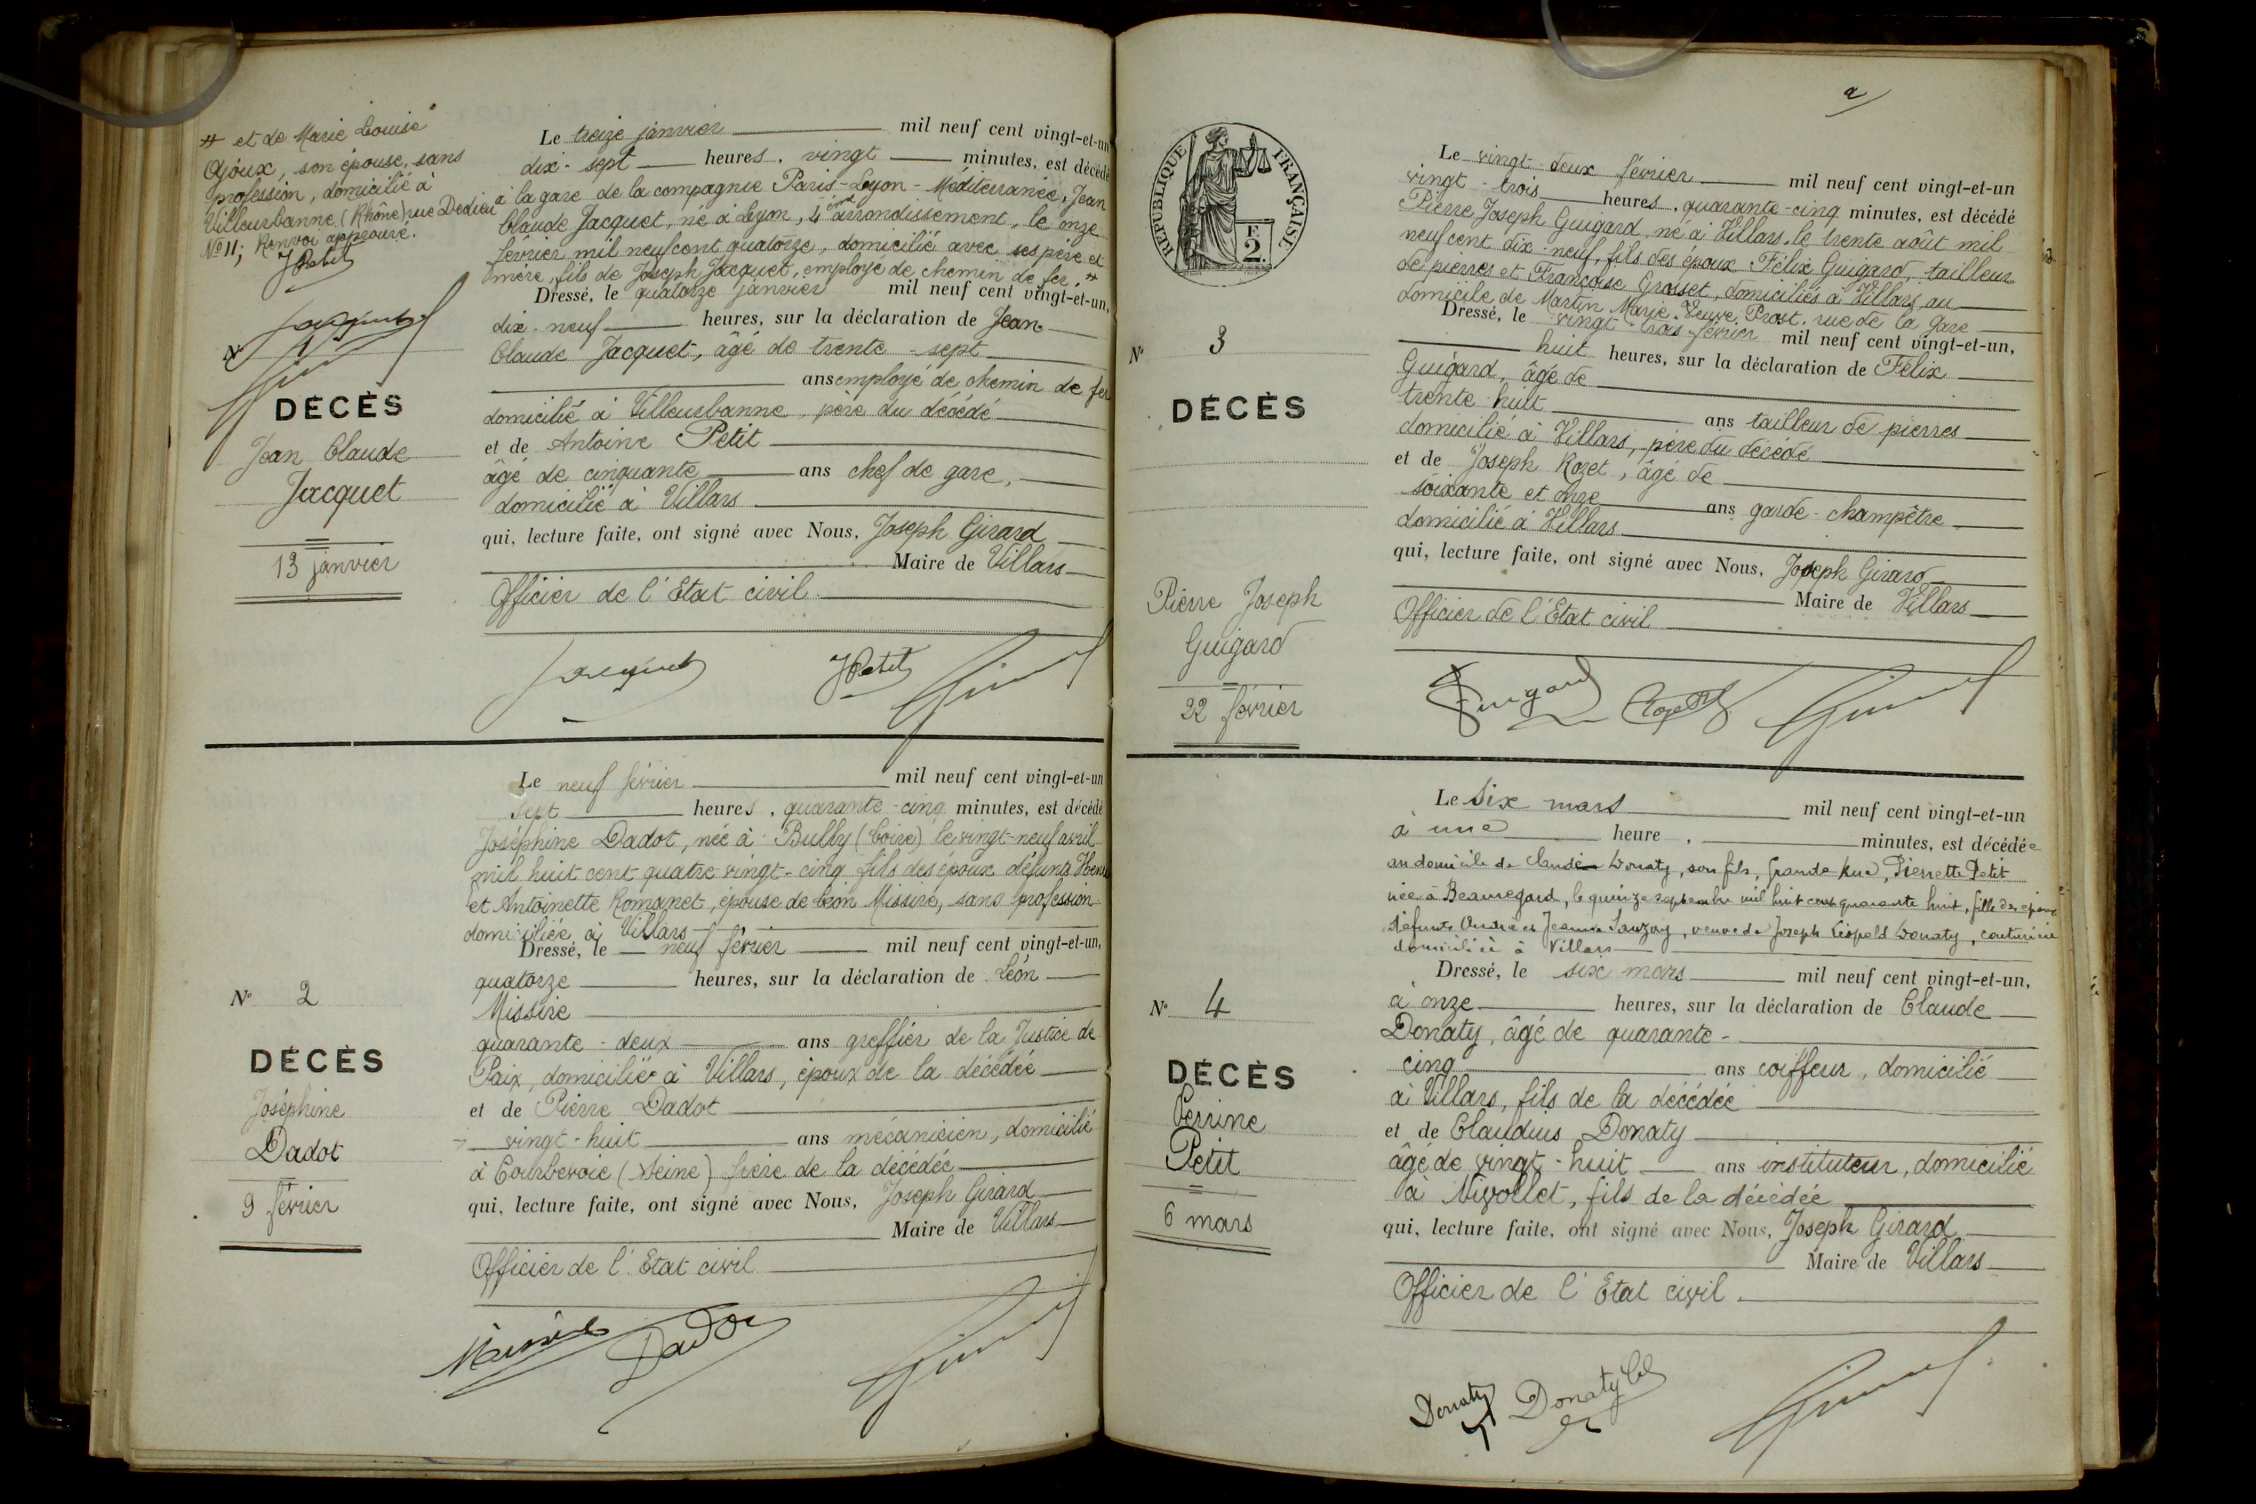 # et de Marie Louise
Ajoux, son épouse, sans
profession, domicilié à
Villeurbanne (Rhône) rue Dedieu
No 11; Renvoi approuvé.
JPetit
Jacquet
No 1
DÉCÈS
Jean Claude
Jacquet
13 janvier
Le treize janvier mil neuf cent vingt-et-un
dix-sept heures, vingt minutes, est décédé
à la gare de la compagnie Paris-Lyon-Méditerranée, Jean
Claude Jacquet, né à Lyon, 4 ème arrondissement, le onze
février mil neuf cent quatorze, domicilié avec ses père et
mère, fils de Joseph Jacquet, employé de chemin de fer, #
Dressé, le quatorze janvier mil neuf cent vingt-et-un,
dix-neuf heures, sur la déclaration de Jean
Claude Jacquet, âgé de trente-sept
ans employé de chemin de fer
domicilié à Villeurbanne, père du décédé
et de Antoine Petit
âgé de cinquante ans chef de gare,
domicilié à Villars
qui, lecture faite, ont signé avec Nous, Joseph Girard
Maire de Villars
Officier de l'Etat civil.
Jacquet JPetit Girard
No 2
DÉCÈS
Joséphine
Dadot
9 février
Le neuf février mil neuf cent vingt-et-un
sept heures, quarante-cinq minutes, est décédé
Joséphine Dadot, née à Bully (Loire) le vingt-neuf avril
mil huit cent quatre vingt-cinq fils des époux défunts
et Antoinette Romanet, épouse de Léon Missire, sans profession
domiciliée à Villars
Dressé, le neuf février mil neuf cent vingt-et-un,
quatorze heures, sur la déclaration de Léon
Missire
quarante-deux ans greffier de la Justice de
Paix, domicilié à Villars, époux de la décédée
et de Pierre Dadot
vingt-huit ans mécanicien, domicilié
à Courbevoie (Seine) frère de la décédée
qui, lecture faite, ont signé avec Nous, Joseph Girard
Maire de Villars
Officier de l'Etat civil
Missire Dadot Girard
2
RÉPUBLIQUE FRANÇAISE
2 F.
No 3
DÉCÈS
Pierre Joseph
Guigard
22 février
Le vingt-deux février mil neuf cent vingt-et-un
vingt-trois heures, quarante-cinq minutes, est décédé
Pierre Joseph Guigard, né à Villars, le trente août mil
neuf cent dix-neuf, fils des époux Félix Guigard, tailleur
de pierres et Françoise Grosset, domiciliés à Villars, au
domicile de Martin Marie Veuve Prost, rue de la Gare
Dressé, le vingt-trois février mil neuf cent vingt-et-un,
huit heures, sur la déclaration de Félix
Guigard, âgé de
trente-huit ans tailleur de pierres
domicilié à Villars, père du décédé
et de Joseph Rozet, âgé de
soixante et onze ans garde-champêtre
domicilié à Villars
qui, lecture faite, ont signé avec Nous, Joseph Girard
Maire de Villars
Officier de l'Etat civil
Guigard Rozet Girard
No 4
DÉCÈS
Perrine
Petit
6 mars
Le Six mars mil neuf cent vingt-et-un
à une heure, minutes, est décédée
au domicile de Claude Donaty, son fils, Grande Rue, Pierrette Petit
née à Beauregard, le quinze septembre mil huit cent quarante huit, fille des époux
défunts André et Jeanne Sauzay, veuve de Joseph Léopold Donaty, couturière
domiciliée à Villars
Dressé, le six mars mil neuf cent vingt-et-un,
à onze heures, sur la déclaration de Claude
Donaty, âgé de quarante-
cinq ans coiffeur, domicilié
à Villars, fils de la décédée
et de Claudius Donaty
âgé de vingt-huit ans instituteur, domicilié
à Nivollet, fils de la décédée
qui, lecture faite, ont signé avec Nous, Joseph Girard
Maire de Villars
Officier de l'Etat civil.
Donaty Donaty Cl Girard